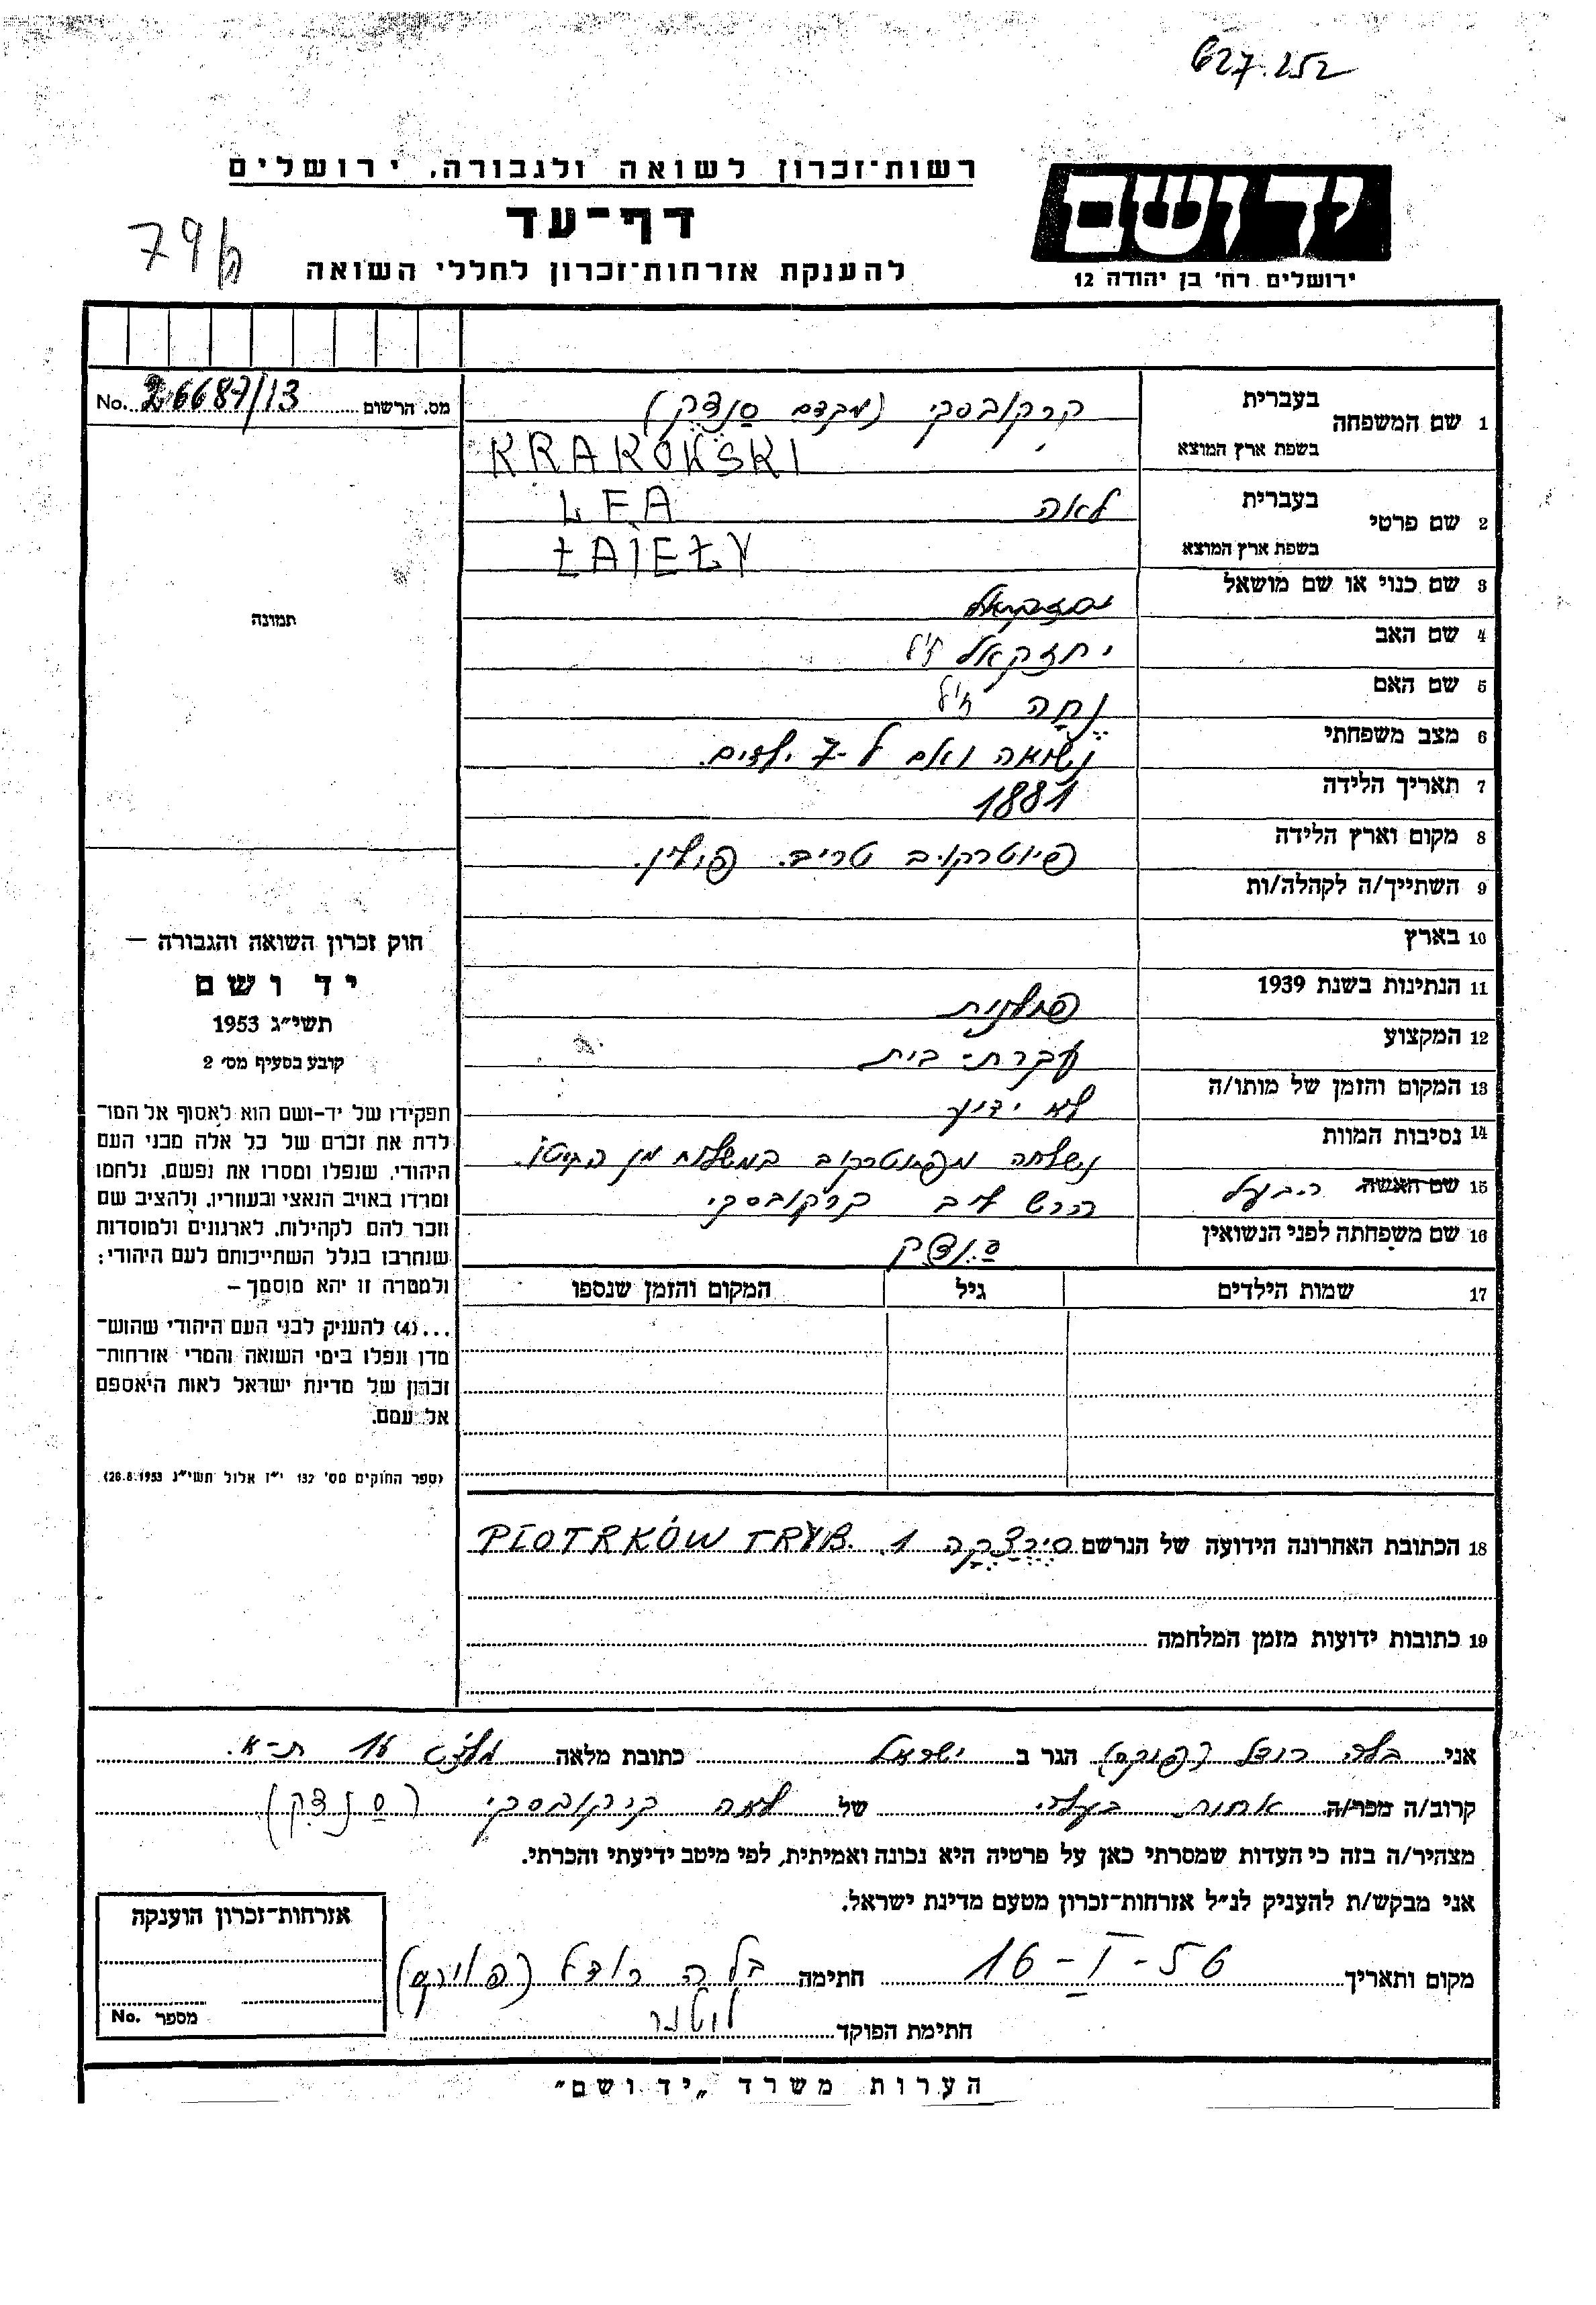 627.252
רשות־זכרון לשואה ולגבורה, ירושלים
יד ושם
דף־עד
79
להענקת אזרחות־זכרון לחללי השואה
ירושלים רח' בן יהודה 12
מס. הרשום 26687/13 No.
1 שם המשפחה בעברית קרקובסקי (מקדם סנדק)
בשפת ארץ המוצא KRAKOWSKI
2 שם פרטי בעברית לאה LEA
בשפת ארץ המוצא ŁAJEŁY
3 שם כנוי או שם מושאל
4 שם האב יחזקאל ז"ל
5 שם האם נחה ז"ל
6 מצב משפחתי נשואה ואם ל-7 ילדים.
7 תאריך הלידה 1881
8 מקום וארץ הלידה פיוטרקוב טריב. פולין.
9 השתייך/ה לקהלה/ות
10 בארץ
11 הנתינות בשנת 1939 פולנית
12 המקצוע עקרת-בית
13 המקום והזמן של מותו/ה לא ידוע
14 נסיבות המוות נשלחה מפיוטרקוב במשלוח מן הגיטו.
15 שם האשה הבעל הרש ליב קרקובסקי
16 שם משפחתה לפני הנשואין סנדק
17 שמות הילדים גיל המקום והזמן שנספו
תמונה
חוק זכרון השואה והגבורה —
יד ושם
תשי"ג 1953
קובע בסעיף מס' 2
תפקידו של יד-ושם הוא לאסוף אל המו־
לדת את זכרם של כל אלה מבני העם
היהודי, שנפלו ומסרו את נפשם, נלחמו
ומרדו באויב הנאצי ובעוזריו, ולהציב שם
וזכר להם לקהילות, לארגונים ולמוסדות
שנחרבו בגלל השתייכותם לעם היהודי;
ולמטרה זו יהא מוסמך —
...(4) להעניק לבני העם היהודי שהוש־
מדו ונפלו בימי השואה והמרי אזרחות־
זכרון של מדינת ישראל לאות היאספם
אל עמם.
(ספר החוקים מס' 132 י"ז אלול תשי"ג 28.8.1953)
18 הכתובת האחרונה הידועה של הנרשם 1 PIOTRKÓW TRYB.
19 כתובות ידועות מזמן המלחמה
אני בלה רודל הגר ב ישראל כתובת מלאה 16 ת-א.
קרוב/ה מכר/ה אחות בעלי של לאה קרקובסקי (סנדק)
מצהיר/ה בזה כי העדות שמסרתי כאן על פרטיה היא נכונה ואמיתית, לפי מיטב ידיעתי והכרתי.
אני מבקש/ת להעניק לנ"ל אזרחות־זכרון מטעם מדינת ישראל.
מקום ותאריך 16-I-56 חתימה בלה רודל
חתימת הפוקד
אזרחות־זכרון הוענקה
מספר No.
הערות משרד „יד ושם"